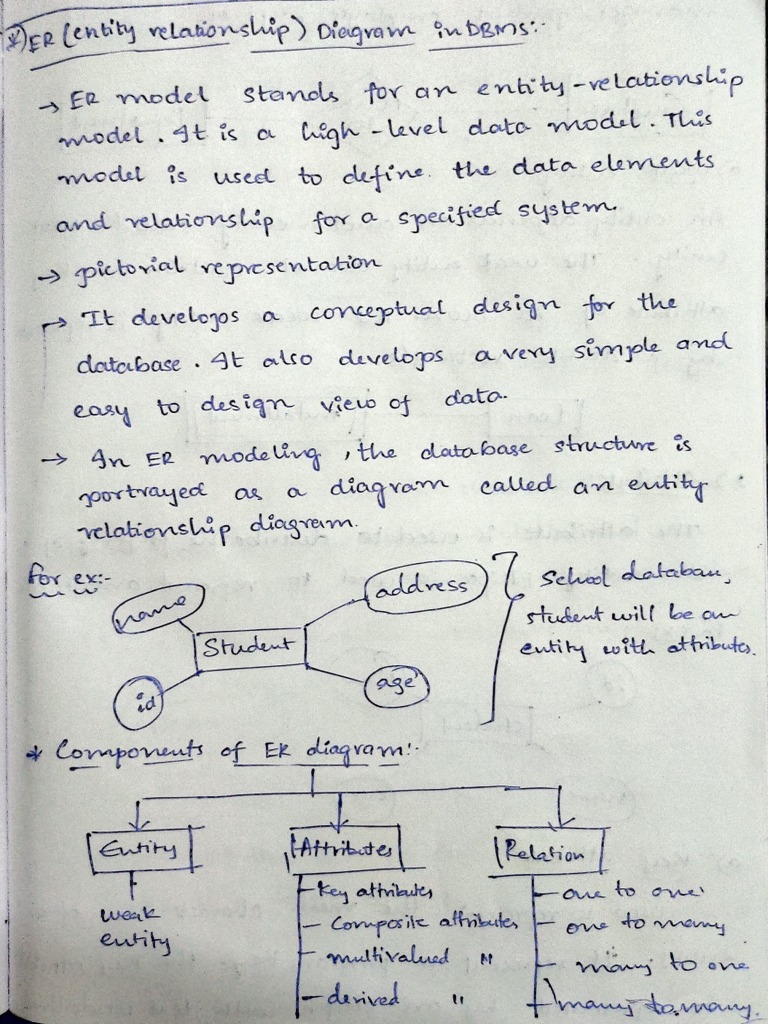 *) ER (entity relationship) Diagram in DBMS:-
→ ER model stands for an entity-relationship
model. It is a high-level data model. This
model is used to define. the data elements
and relationship for a specified system.
→ pictorial representation
→ It develops a conceptual design for the
database. It also develops a very simple and
easy to design view of data.
→ In ER modeling, the database structure is
portrayed as a diagram called an entity
relationship diagram.
for ex:-
name
address
Student
id
age
School database,
student will be an
entity with attributes.
* Components of ER diagram:-
Entity
Attributes
Relation
weak
entity
- Key attributes
- Composite attributes
- multivalued "
- derived "
- one to one
- one to many
- many to one
- many to many.